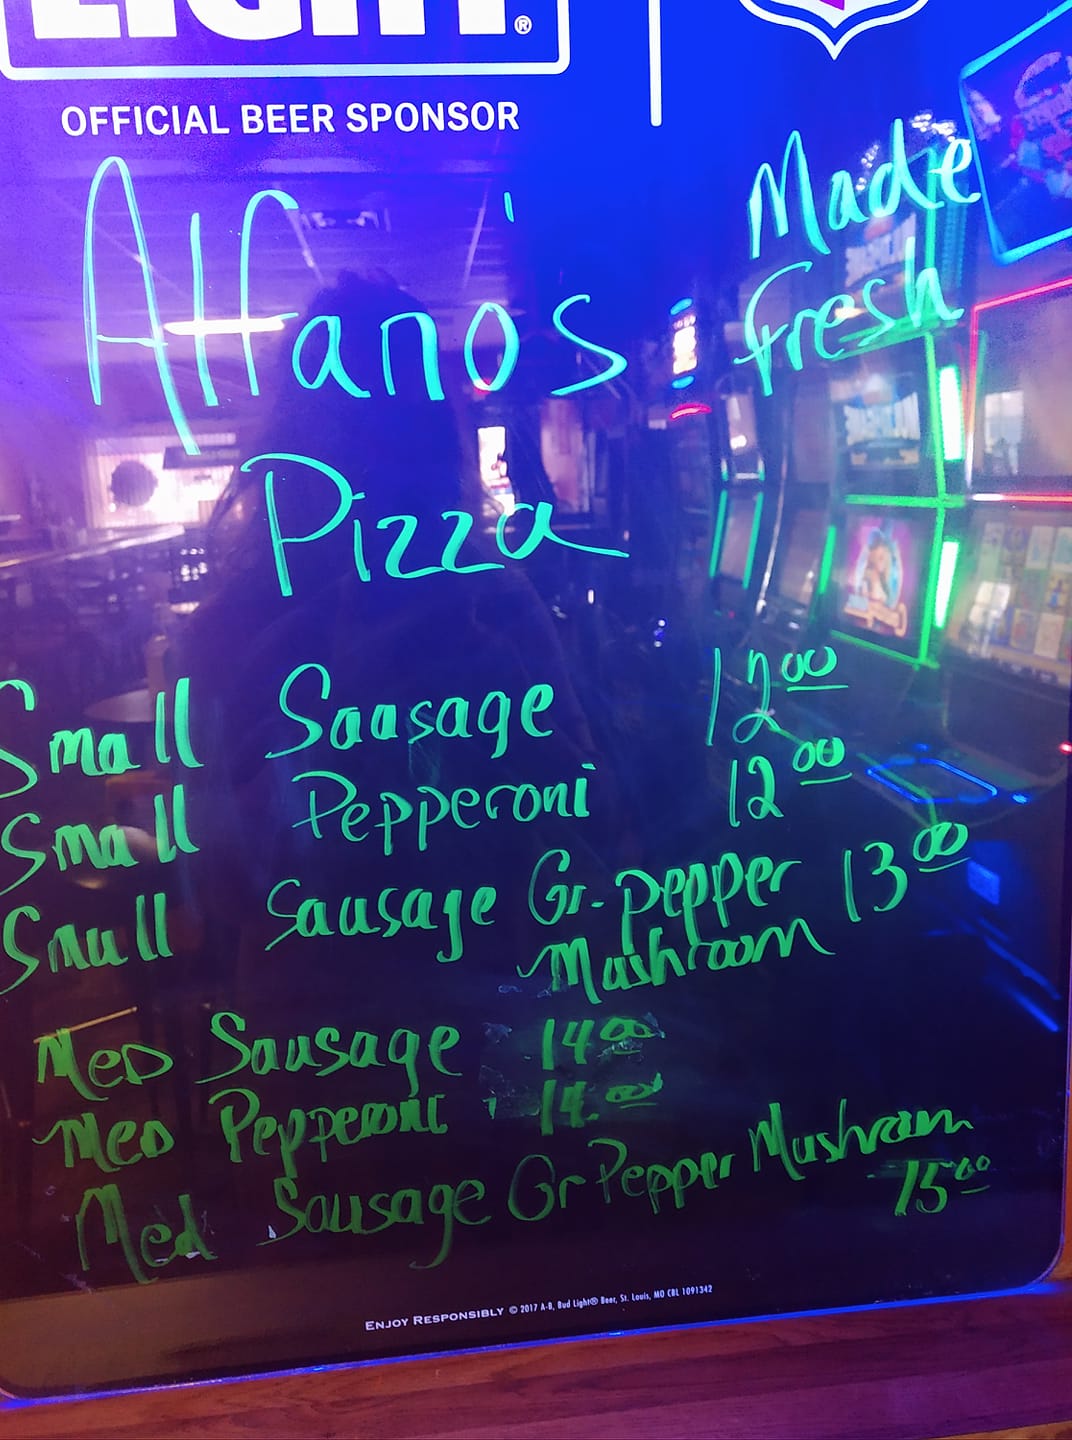 LIGHT®
OFFICIAL BEER SPONSOR
Made
Fresh
Alfano's
Pizza
Small Sausage 12.00
Small Pepperoni 12.00
Small Sausage Gr-pepper 13.00
Mushroom
Med Sausage 14.00
Med Pepperoni 14.00
Med Sausage Gr Pepper Mushroom
15.00
ENJOY RESPONSIBLY © 2017 A-B, Bud Light® Beer, St. Louis, MO CBL 1091342